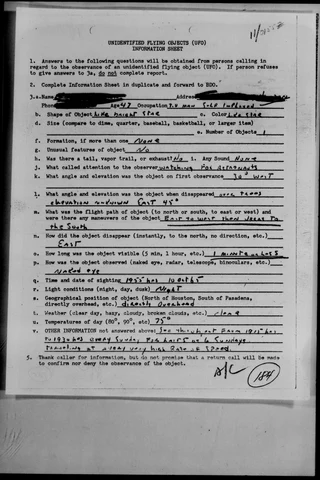 UNIDENTIFIED FLYING OBJECTS (UFO)
INFORMATION SHEET
1. Answers to the following questions will be obtained from persons calling in
regard to the observance of an unidentified flying object (UFO). If person refuses
to give answers to 3a, do not complete report.
2. Complete Information Sheet in duplicate and forward to EDO.
3.a. Name Address
Phone Age 43 Occupation T.V man Self Employed
b. Shape of Object Like Bright Star c. Color Like Star
d. Size (compare to dime, quarter, baseball, basketball, or larger item)
e. Number of Objects 1
f. Formation, if more than one None
g. Unusual features of object No
h. Was there a tail, vapor trail, or exhaust? No i. Any Sound None
j. What called attention to the observer watching for
k. What angle and elevation was the object on first observance 30° West
l. What angle and elevation was the object when disappeared
elevation unknown East 45°
m. What was the flight path of object (to north or south, to east or west) and
were there any maneuvers of the object East to west then
the South
n. How did the object disappear (instantly, to the north, no direction, etc.)
East
o. How long was the object visible (5 min, 1 hour, etc.) 1 minute
p. How was the object observed (naked eye, radar, telescope, binoculars, etc.)
Naked eye
q. Time and date of sighting 1955 hrs 10 Oct 65
r. Light conditions (night, day, dusk) Night
s. Geographical position of object (North of Houston, South of Pasadena,
directly overhead, etc.) directly overhead
t. Weather (clear day, hazy, cloudy, broken clouds, etc.)
u. Temperatures of day (80°, 90°, etc) 75°
v. OTHER INFORMATION not answered above
every Sunday for Sundays
Traveling at a very high Rate of Speed.
5. Thank caller for information, but do not promise that a return call will be made
to confirm nor deny the observance of the object.
A/C
184